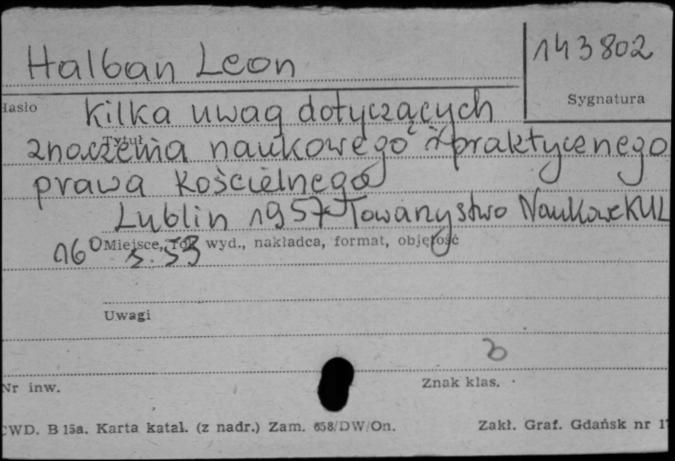 Halban Leon
143802
Sygnatura
Hasło
Kilka uwag dotyczących
Tytuł
znaczenia naukowego i praktycznego
prawa kościelnego
Lublin 1957 Towarzystwo Naukowe KUL
Miejsce, rok wyd., nakładca, format, objętość
16° s. 53
Uwagi
Nr inw.
Znak klas.
CWD. B 15a. Karta katal. (z nadr.) Zam. 658/DW/On.
Zakł. Graf. Gdańsk nr 1